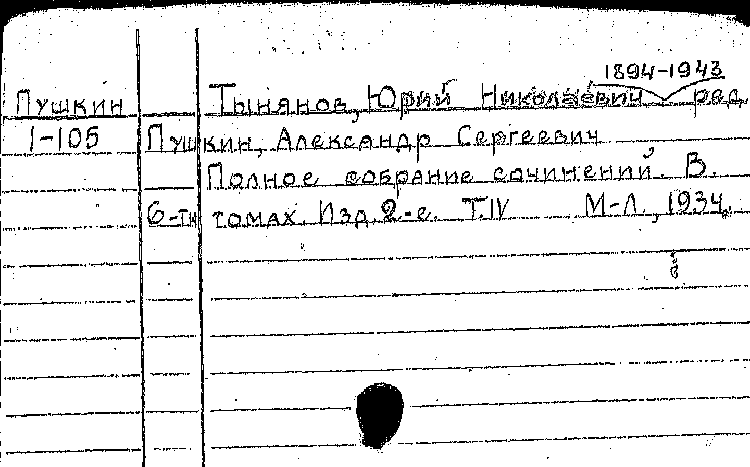 1894-1943
Пушкин Тынянов, Юрий Николаевич ред.
1-105 Пушкин, Александр Сергеевич
Полное собрание сочинений. В.
6-ти томах. Изд. 2-е. Т.IV М-Л., 1934.